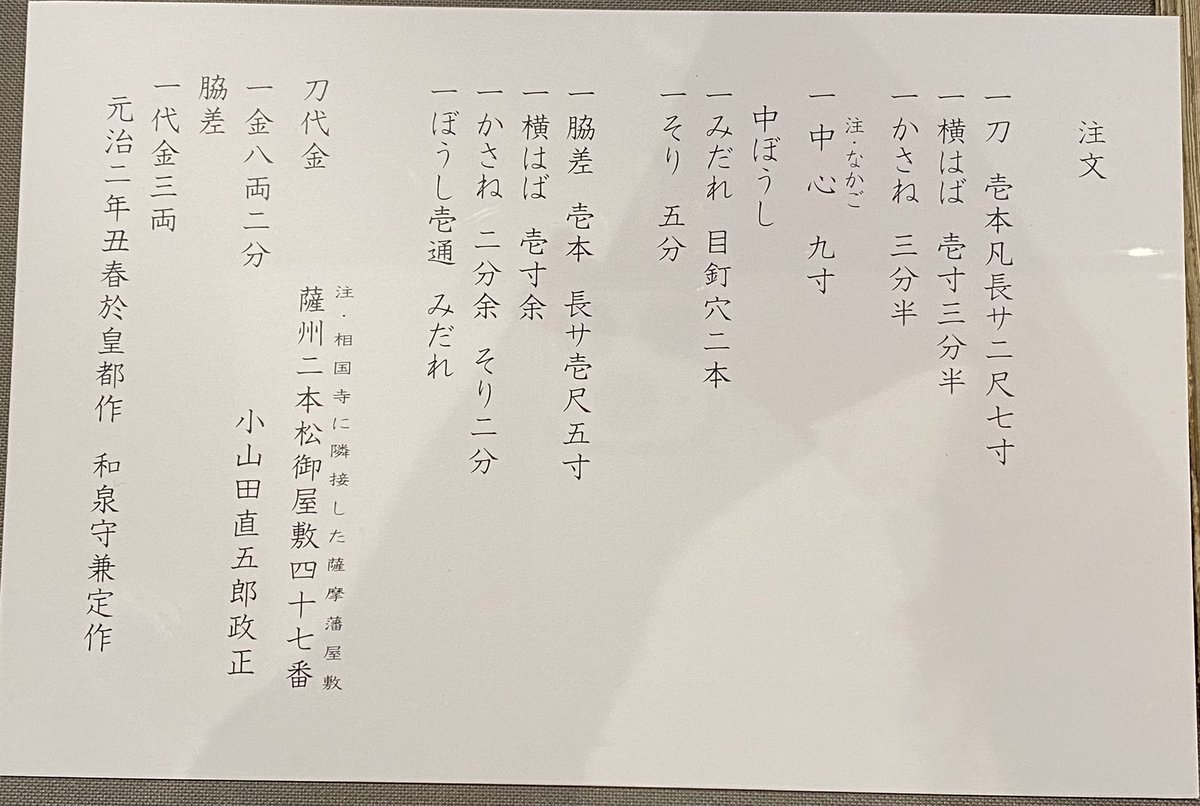 注文
一刀　壱本凡長サ二尺七寸
一横はば　壱寸三分半
一かさね　三分半
注・なかご
一中心　九寸
中ぼうし
一みだれ　目釘穴二本
一そり　五分
一脇差　壱本　長サ壱尺五寸
一横はば　壱寸余
一かさね　二分余　そり二分
一ぼうし壱通　みだれ
注・相国寺に隣接した薩摩藩屋敷
刀代金　薩州二本松御屋敷四十七番
一金八両二分　小山田直五郎政正
脇差
一代金三両
元治二年丑春於皇都作　和泉守兼定作